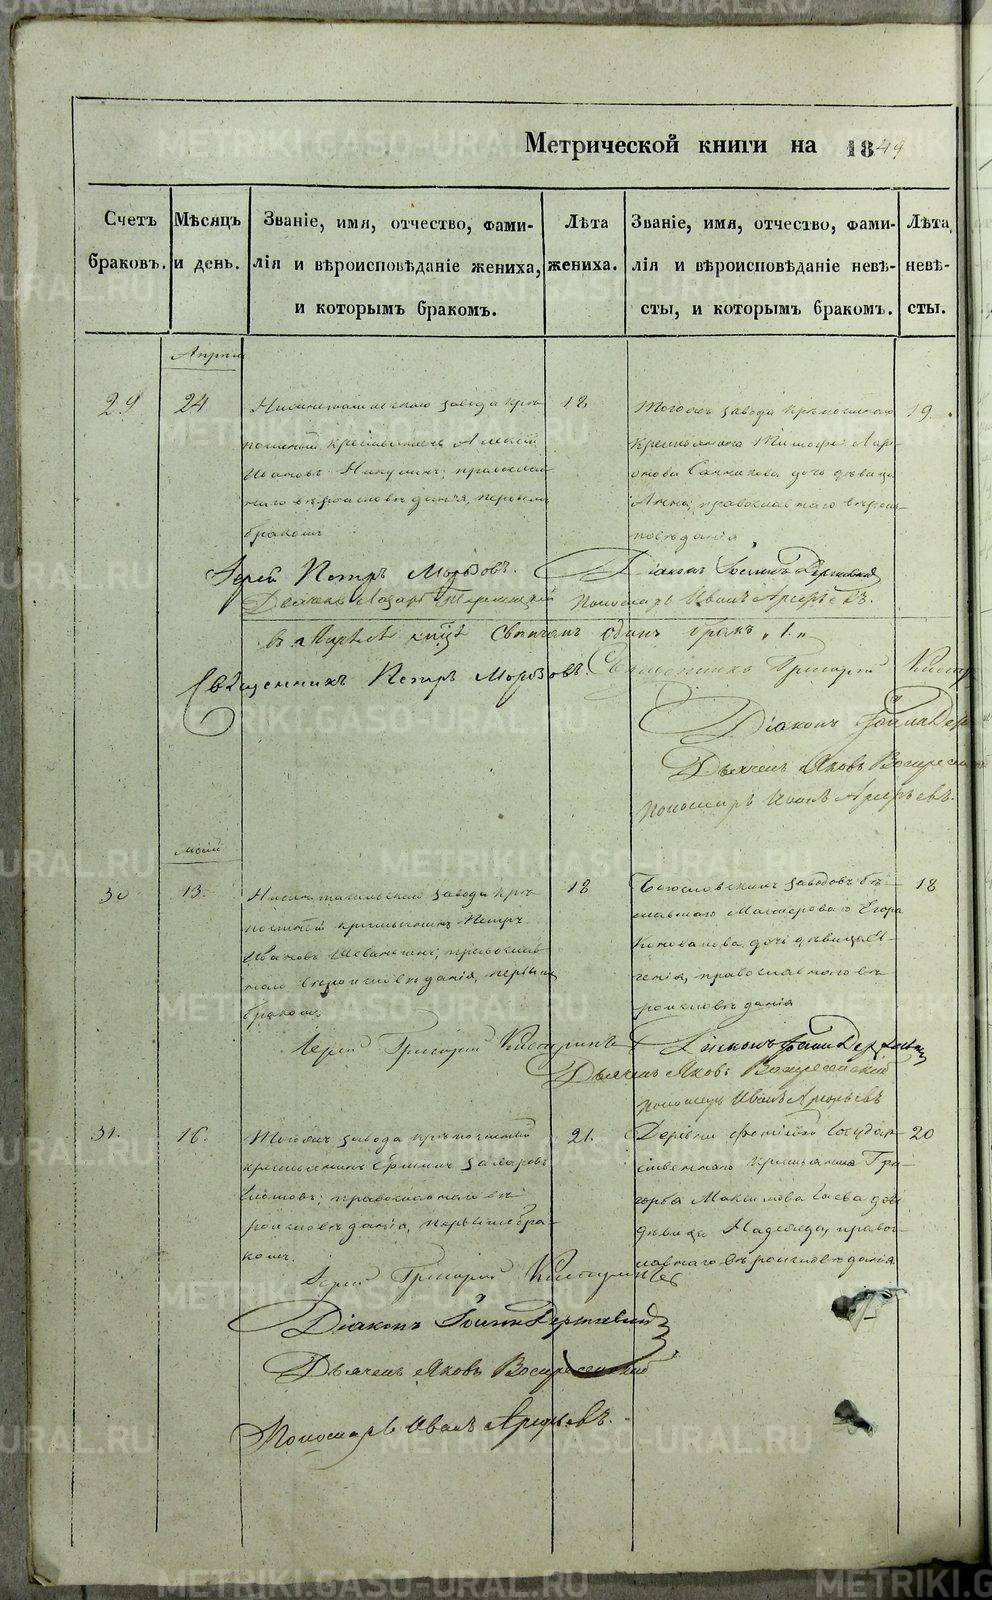 Метрической книги на 1849
Счетъ браковъ.
Мѣсяцъ и день.
Званіе, имя, отчество, фами-
лія и вѣроисповѣданіе жениха,
и которымъ бракомъ.
Лѣта жениха.
Званіе, имя, отчество, фами-
лія и вѣроисповѣданіе невѣ-
сты, и которымъ бракомъ.
Лѣта невѣ-
сты.
Апрѣль
29
24
Нижнетагильскаго завода крѣ-
постный крестьянинъ Алексѣй
Ивановъ Никулинъ; православ-
наго вѣроисповѣданія, первымъ
бракомъ
18
Тогожъ завода крѣпостнаго
крестьянина Тимофея Ларі-
онова Санникова дочь дѣвица
Анна; православнаго вѣроис-
повѣданія
19.
Іерей Петръ Морозовъ.
Діаконъ Іоаннъ
Дьячекъ Лазарь
Пономарь Иванъ Арефьевъ.
въ Апрѣлѣ м-цѣ свѣнчанъ одинъ бракъ „1.„
Священникъ Петръ Морозовъ.
Священникъ Григорій
Діаконъ
Дьячекъ Яковъ
Пономарь Иванъ Арефьевъ.
Маій
30
13.
Нижнетагильскаго завода крѣ-
постной крестьянинъ Петръ
Ивановъ православ-
наго вѣроисповѣданія, первымъ
бракомъ.
18
Богословскихъ заводовъ бѣ-
жавшаго Мастероваго Егора
Коновалова дочь дѣвица
православнаго вѣ-
роисповѣданія
18
Іерей Григорій
Діаконъ
Дьячекъ Яковъ Воскресенскій
Пономарь Иванъ Арефьевъ
31.
16.
Тогожъ завода крѣпостной
крестьянинъ Захаровъ
православнаго вѣ-
роисповѣданія, первымъ бра-
комъ.
21.
Деревни Государ-
ственнаго крестьянина Гри-
горья Максимова дочь
дѣвица Надежда, правос-
лавнаго вѣроисповѣданія
20
Іерей Григорій
Діаконъ Іоаннъ
Дьячекъ Яковъ Воскресенскій
Пономарь Иванъ Арефьевъ.
METRIKI.GASO-URAL.RU